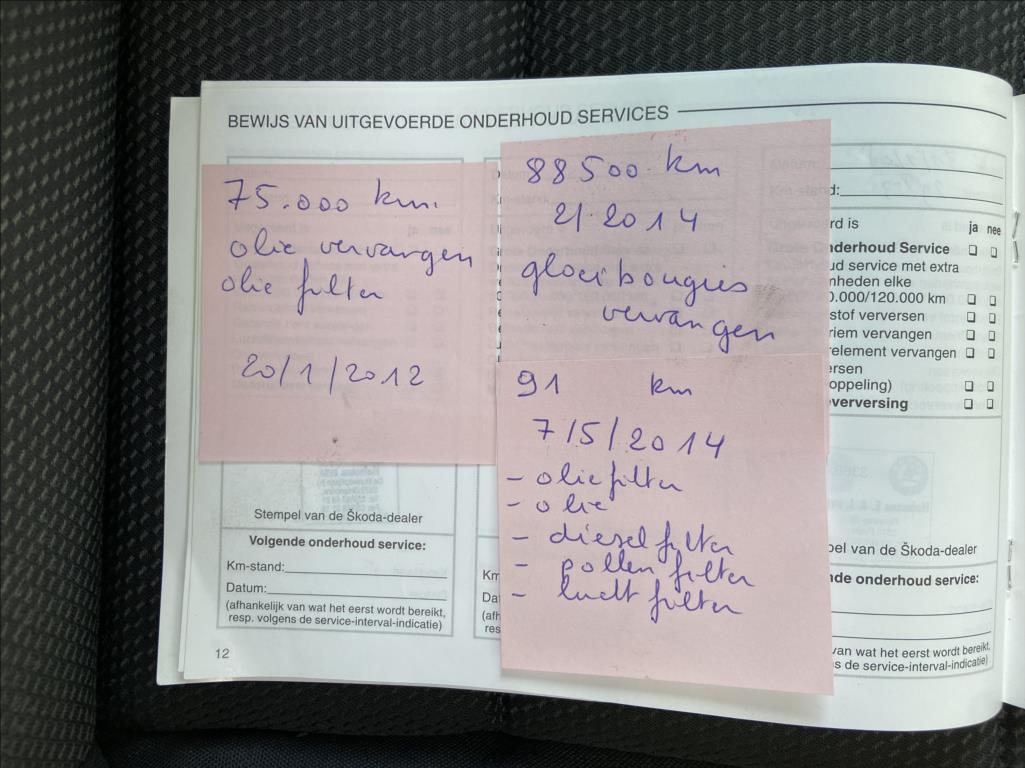 BEWIJS VAN UITGEVOERDE ONDERHOUD SERVICES
75.000 km.
olie vervangen
olie filter
20/1/2012
88500 km
2/2014
gloeibougies
vervangen
91 km
7/5/2014
- oliefilter
- olie
- dieselfilter
- pollen filter
- lucht filter
d:
rd is ja nee
nderhoud Service
ud service met extra
mheden elke
0.000/120.000 km
stof verversen
riem vervangen
relement vervangen
ersen
oppeling)
everversing
Stempel van de Škoda-dealer
Volgende onderhoud service:
Km-stand:
Datum:
(afhankelijk van wat het eerst wordt bereikt,
resp. volgens de service-interval-indicatie)
12
Km
Dat
(afh
res
pel van de Škoda-dealer
nde onderhoud service:
van wat het eerst wordt bereikt,
ns de service-interval-indicatie)